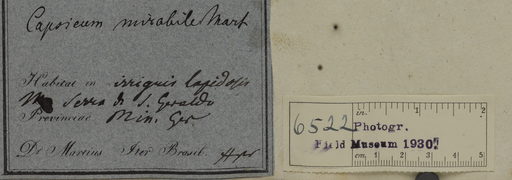 Capsicum mirabile Mart
Habitat in irriguis lapidosis
Serra de S. Geraldo
Provinciae Min. Ger
Dr Martius Iter Brasil.
in. 1 2
6522 Photogr.
Field Museum 1930
cm. 1 2 3 4 5